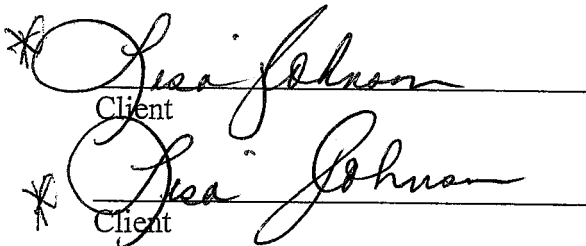 * Lisa Johnson
Client
* Lisa Johnson
Client